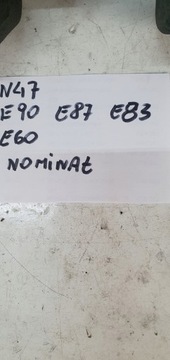 N47
E90 E87 E83
E60
NOMINAŁ